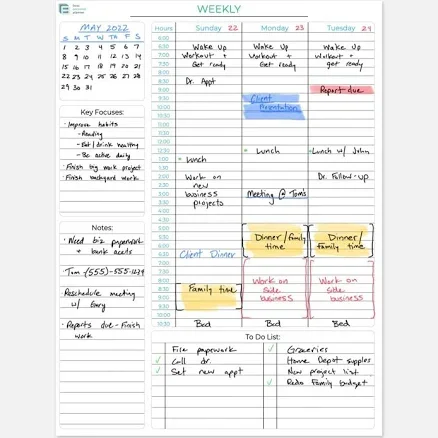 WEEKLY
MAY 2022
S M T W Th F S
1 2 3 4 5 6 7
8 9 10 11 12 13 14
15 16 17 18 19 20 21
22 23 24 25 26 27 28
29 30 31
Key Focuses:
Improve habits
- Reading
- Eat/drink healthy
- Be active daily
Finish big work project
Finish backyard work
Notes:
Need biz paperwork
+ bank accts
Reschedule meeting
w/ Gary
Reports due - Finish
work
Hours
6:00
6:30
7:00
7:30
8:00
8:30
9:00
9:30
10:00
10:30
11:00
11:30
12:00
12:30
1:00
1:30
2:00
2:30
3:00
3:30
4:00
4:30
5:00
5:30
6:00
6:30
7:00
7:30
8:00
8:30
9:00
9:30
10:30
Sunday 22
Wake Up
Workout +
Get ready
Dr. Appt
Lunch
Work on
new
business
projects
Client Dinner
Family time
Bed
Monday 23
Wake Up
Workout +
Get ready
Client
Lunch
Meeting @ Tom's
Dinner/family
time
Work on
side
business
Bed
Tuesday 24
Wake Up
Workout +
get ready
Report due
Lunch w/ John
Dr. Follow-up
Dinner/
family time
Work on
side
business
Bed
To Do List:
File paperwork
Call dr.
Set new appt
Groceries
Home Depot supplies
New project list
Redo family budget